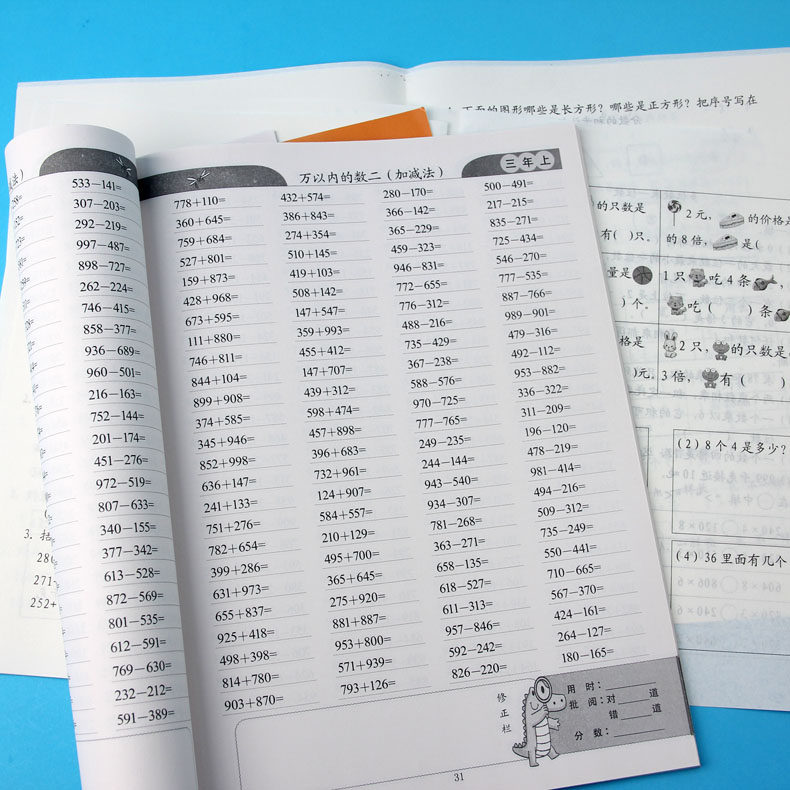 下面的图形哪些是长方形？哪些是正方形？把序号写在
法）
万以内的数二（加减法）
三年上
533－141=
307－203=
292－219=
997－487=
898－727=
262－224=
746－415=
858－377=
936－689=
960－501=
216－163=
752－144=
201－174=
451－276=
972－519=
807－633=
340－155=
377－342=
613－528=
872－569=
801－535=
612－591=
769－630=
232－212=
591－389=
778+110= 432+574= 280－170= 500－491=
360+645= 386+843= 366－142= 217－215=
759+684= 274+354= 365－229= 835－271=
527+801= 510+145= 459－323= 725－434=
159+873= 419+103= 946－831= 546－270=
428+968= 508+142= 772－655= 777－535=
673+595= 147+547= 776－312= 887－766=
111+880= 359+993= 488－216= 989－901=
746+811= 455+412= 735－429= 479－316=
844+104= 147+707= 367－238= 492－112=
899+908= 439+312= 588－576= 953－882=
374+585= 598+474= 970－725= 336－322=
345+946= 457+898= 777－765= 311－209=
852+998= 396+683= 249－235= 196－120=
636+147= 732+961= 244－144= 478－219=
241+133= 124+907= 943－540= 981－414=
751+276= 584+557= 934－307= 494－216=
782+654= 210+129= 781－268= 509－312=
399+286= 495+700= 363－271= 735－249=
631+973= 365+645= 658－135= 550－441=
655+837= 275+920= 618－527= 710－665=
925+418= 881+887= 611－313= 567－370=
498+398= 953+800= 957－846= 424－161=
814+780= 571+939= 592－242= 264－127=
903+870= 793+126= 826－220= 180－165=
修正栏
用时：
批阅：对 道
错 道
分数：
31
的只数是
有（ ）只。
2元，的价格是
的8倍，是（
量是
）个。
1只吃4条，
吃（ ）条
格是
）元。
2只，的只数是
3倍，有（ ）
（2）8个4是多少？
（4）36里面有几个
3.
28
271
252+